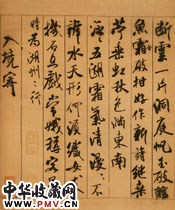 斷雲一片洞庭帆玉破鱸
魚霜破柑好作新詩繼桑
苧垂虹秋色滿東南
泛五湖霜氣清漫漫不
辨水天形何須織女支
機石且戲嫦娥稱客星
時為湖州之行
入境寄
中华收藏网
WWW.SC001.COM.CN